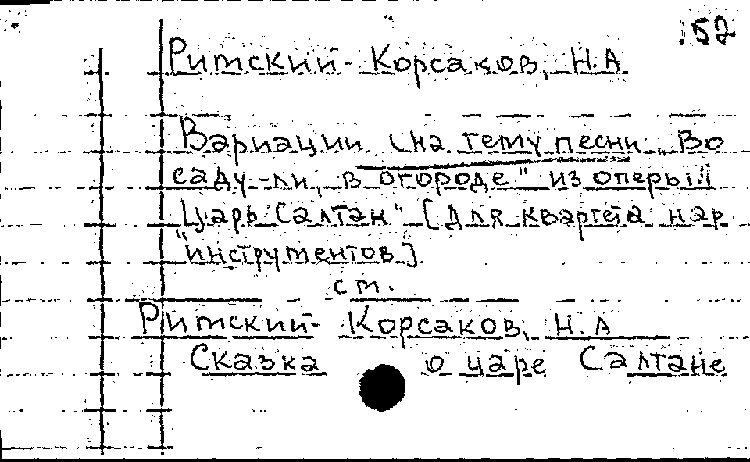 52
Римский-Корсаков, Н.А
Вариации (на тему песни „Во
саду-ли, в огороде" из оперы
"Царь Салтан" [для квартета нар
инструментов]
ст.
Римский-Корсаков, Н.А
Сказка о царе Салтане